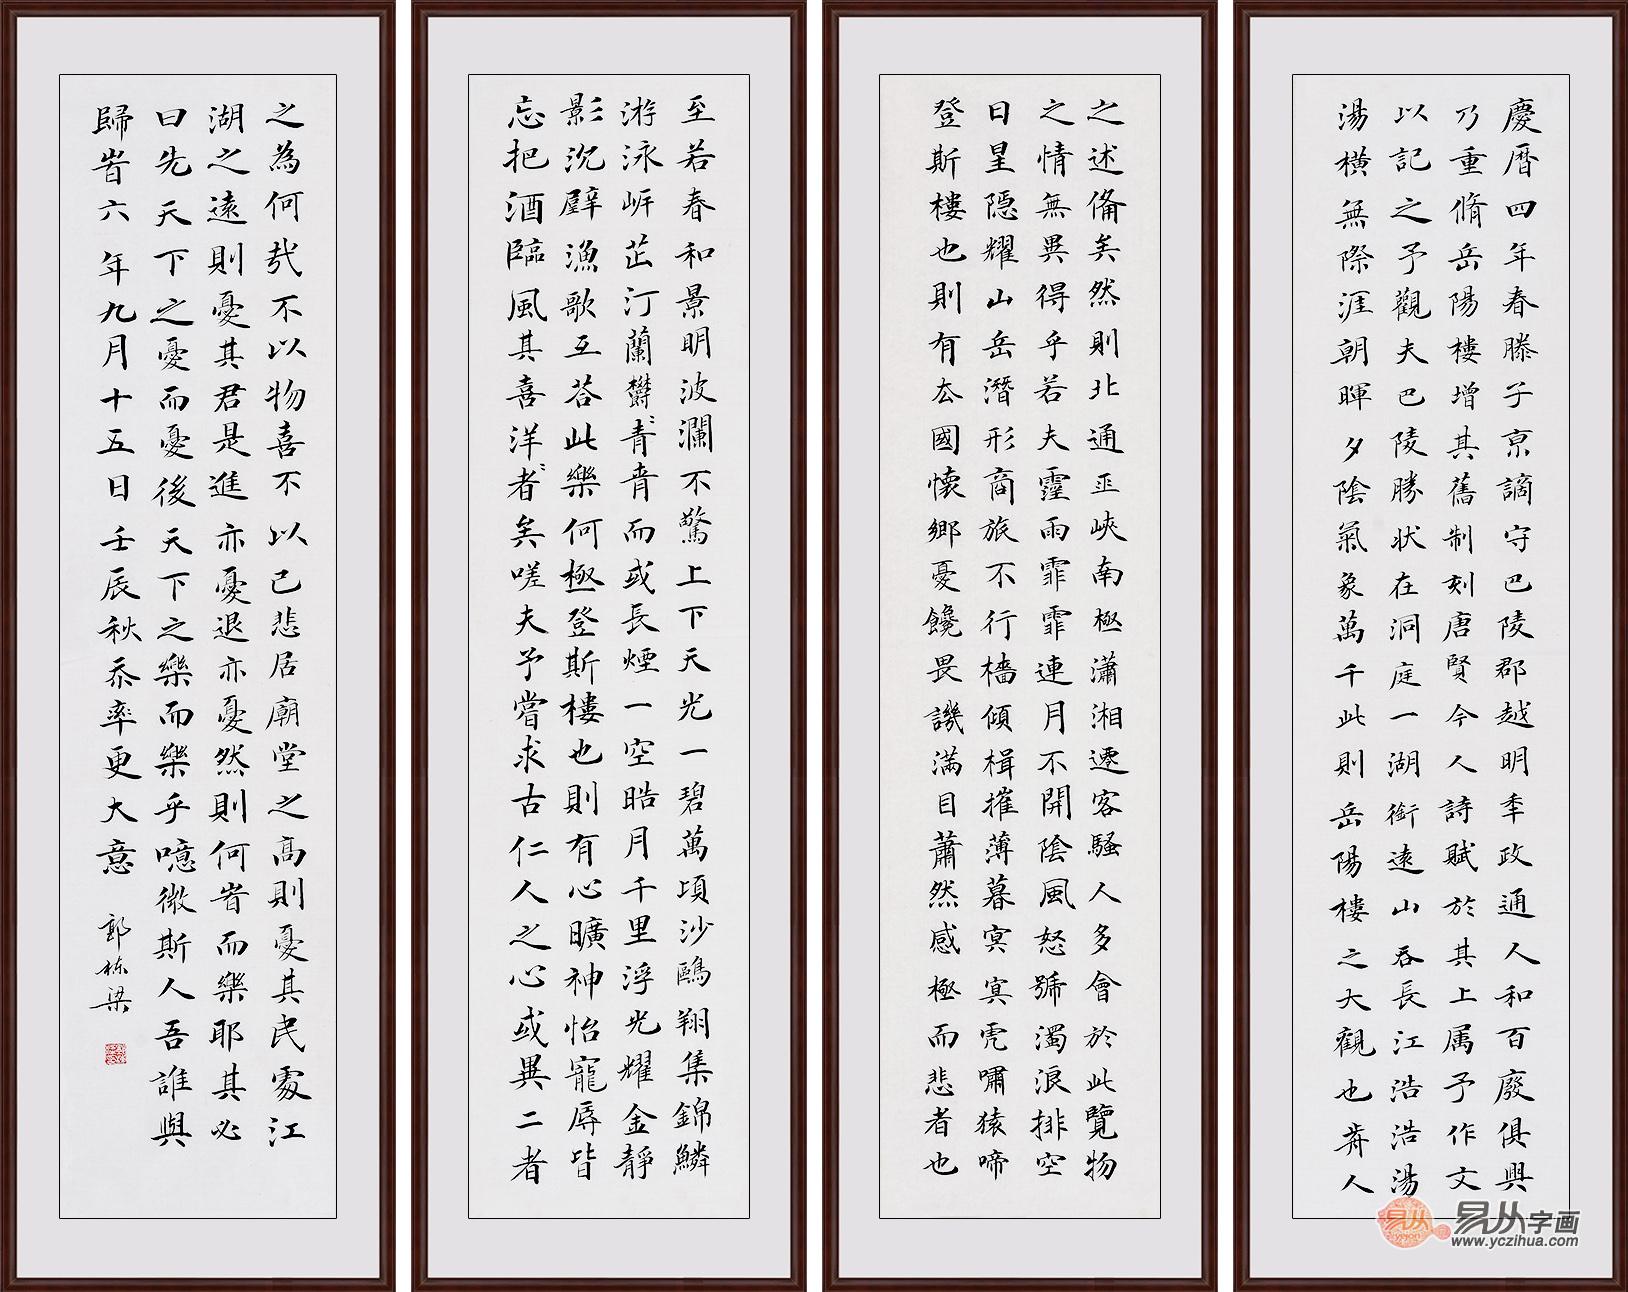 慶暦四年春滕子亰謫守巴陵郡越明秊政通人和百廢俱興
乃重脩岳陽樓增其舊制刻唐賢今人詩賦於其上属予作文
以記之予觀夫巴陵勝状在洞庭一湖銜遠山吞長江浩浩湯
湯橫無際涯朝暉夕陰氣象萬千此則岳陽樓之大觀也前人
之述備矣然則北通巫峽南極瀟湘遷客騷人多會於此覽物
之情無異得乎若夫霪雨霏霏連月不開陰風怒號濁浪排空
日星隱耀山岳潛形商旅不行檣傾楫摧薄暮冥冥虎嘯猿啼
登斯樓也則有去國懷鄉憂讒畏譏滿目蕭然感極而悲者也
至若春和景明波瀾不驚上下天光一碧萬頃沙鷗翔集錦鱗
游泳岸芷汀蘭鬱〻青青而或長煙一空皓月千里浮光耀金靜
影沉璧漁歌互荅此樂何極登斯樓也則有心曠神怡寵辱皆
忘把酒臨風其喜洋〻者矣嗟夫予嘗求古仁人之心或異二者
之為何哉不以物喜不以己悲居廟堂之高則憂其民處江
湖之遠則憂其君是進亦憂退亦憂然則何旹而樂耶其必
曰先天下之憂而憂後天下之樂而樂乎噫微斯人吾誰與
歸旹六年九月十五日壬辰秋忝率更大意 郭栋梁
易从字画
www.yczihua.com